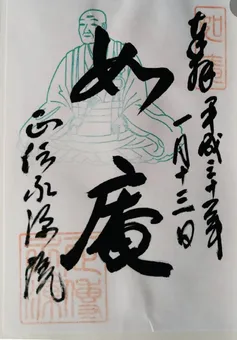 奉拝 平成三十一年
一月十三日
如庵
正伝永源院